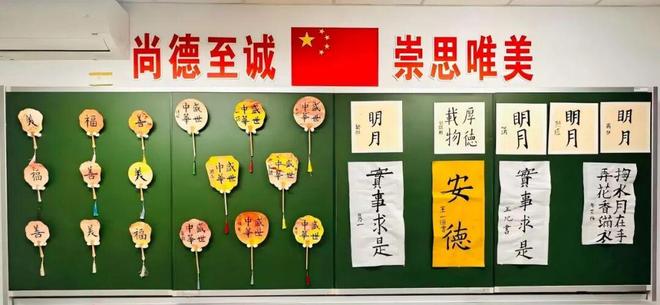 尚德至诚
崇思唯美
美
福
善
福
善
美
善
美
福
盛世
中華
盛世
中華
盛世
中華
盛世
中華
盛世
中華
盛世
中華
盛世
中華
盛世
中華
明月
厚德
載物
明月
明月
明月
實事求是
安德
實事求是
掬水月在手
花香